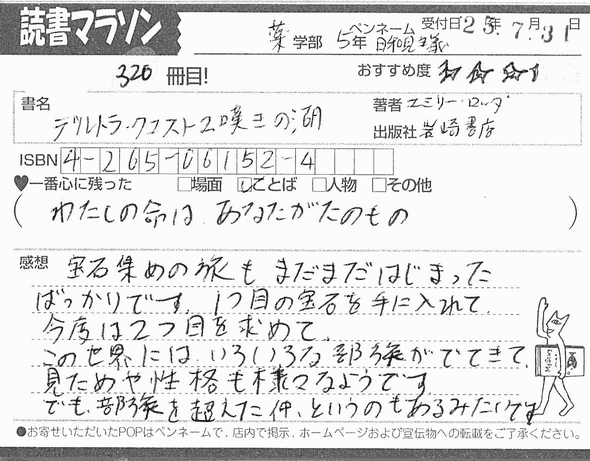 読書マラソン
薬学部 5年 ペンネーム 日和見塚 受付日 25年 7月 31日
320冊目! おすすめ度 ☆☆☆
書名 デルトラ・クエスト2嘆きの湖
著者 エミリー・ロッダ
出版社 岩崎書店
ISBN 4-265-06152-4
♥一番心に残った □場面 ☑ことば □人物 □その他
(わたしの命は、あなたがたのもの)
感想 宝石集めの旅もまだまだはじまった
ばっかりです。1つ目の宝石を手に入れて、
今度は2つ目を求めて。
この世界には、いろいろな部族がでてきて、
見ためや性格も様々なようです
でも、部族を超えた仲、というのもあるみたいです
●お寄せいただいたPOPはペンネームで、店内で掲示、ホームページおよび宣伝物への転載をご了承ください。